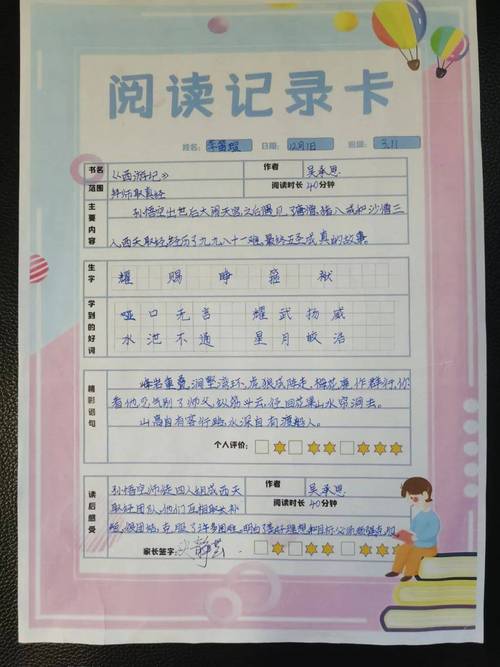 阅读记录卡
姓名: 日期: 12月1日 班级: 3.11
书名 《西游记》 作者 吴承恩
范围 拜师取真经 阅读时长 40分钟
主要内容 孙悟空出世后大闹天宫之后遇见了唐僧,猪八戒和沙僧三
人西天取经,经历了九九八十一难,最终至成真的故事。
生字 耀 赐 狰 蕴 狱
学到的好词 哑口无言 耀武扬威
水泄不通 星月皎洁
精彩语句 洞壑湾环,虎狼成阵走,作群行,你
看他,别了师父,纵筋斗云,径回花果山水帘洞去。
山高自有客行路,水深自有渡船人。
个人评价:
读后感受 孙悟空师徒四人组成西天 作者 吴承恩
取经团队,他们互相取长补 阅读时长 40分钟
短,团结,克服了许多困难。明白了要好理想和目标
家长签字: